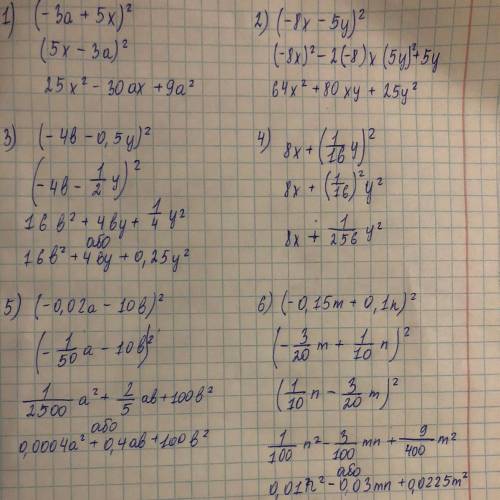 1) (-3a + 5x)²
(5x - 3a)²
25x² - 30ax + 9a²
2) (-8x - 5y)²
(-8x)² - 2(-8)x (5y)²+5y
64x² + 80xy + 25y²
3) (-4в - 0,5y)²
(-4в - 1/2 y)²
16в² + 4вy + 1/4 y²
або
16в² + 4вy + 0,25y²
4) 8x + (1/16 y)²
8x + (1/16)² y²
8x + 1/256 y²
5) (-0,02a - 10в)²
(-1/50 a - 10в)²
1/2500 a² + 2/5 aв + 100в²
або
0,0004a² + 0,4aв + 100в²
6) (-0,15m + 0,1n)²
(-3/20 m + 1/10 n)²
(1/10 n - 3/20 m)²
1/100 n² - 3/100 mn + 9/400 m²
або
0,01n² - 0,03mn + 0,0225m²